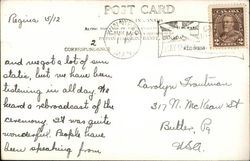 POST CARD
Regina 15/12
2
CORRESPONDENCE
ADDRESS
CANADA
2
and we got a lot of sun
static, but we have been
listening in all day. We
heard a rebroadcast of the
ceremony. It was quite
wonderful. People have
been speaking from
Carolyn Troutman
317 N. McKean St
Butler, Pa
USA.